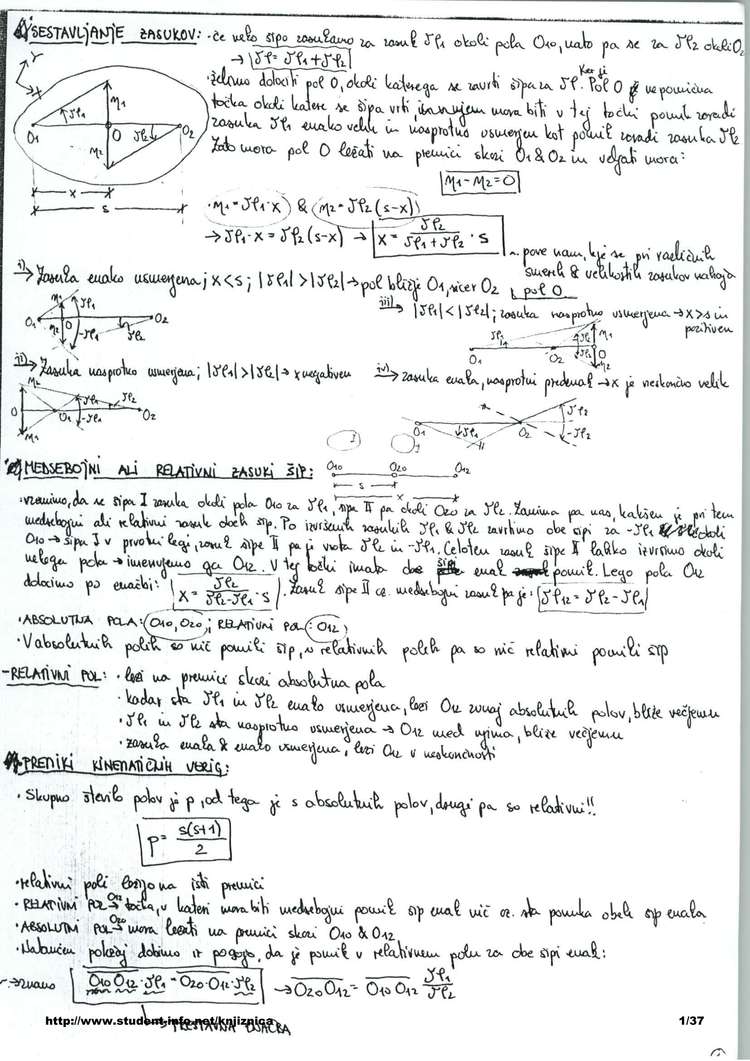 SESTAVLJANJE ZASUKOV: · če neko šipo zasukamo za zasuk δφ1 okoli pola O10, nato pa še za δφ2 okoli O2
→ δφ = δφ1 + δφ2
· želimo določiti pol O, okoli katerega se zavrti šipa za δφ. Ker je Pol O nepomična
točka okoli katere se šipa vrti, mora biti v tej točki pomik zaradi
zasuka δφ1 enako velik in nasprotno usmerjen kot pomik zaradi zasuka δφ2
Zato mora pol O ležati na premici skozi O1 & O2 in veljati mora:
η1 - η2 = 0
· η1 = δφ1 · x & η2 = δφ2 (s-x)
→ δφ1 · x = δφ2 (s-x) → x = δφ2 / (δφ1 + δφ2) · s
pove nam, kje se pri različnih
smereh & velikostih zasukov nahaja
pol O
i) → Zasuka enako usmerjena; x<s; |δφ1| > |δφ2| → pol bližje O1, sicer O2
iii) → |δφ1| < |δφ2|; zasuka nasprotno usmerjena → x>s in
pozitiven
ii) → Zasuka nasprotno usmerjena; |δφ1| > |δφ2| → x negativen
iv) → zasuka enaka, nasprotni predznak → x je neskončno velik
MEDSEBOJNI ALI RELATIVNI ZASUKI ŠIP:
O10 O20 O12
s
x
· vzemimo, da se šipa I zasuka okoli pola O10 za δφ1, šipa II pa okoli O20 za δφ2. Zanima pa nas, kakšen je pri tem
medsebojni ali relativni zasuk obeh šip. Po izvršenih zasukih δφ1 & δφ2 zavrtimo obe šipi za -δφ1 okoli
O10 → šipa I v prvotni legi, zasuk šipe II pa je vsota δφ2 in -δφ1. Celoten zasuk šipe II lahko izvršimo okoli
nekega pola → imenujemo ga O12. V tej točki imata obe šipi enak pomik. Lego pola O12
določimo po enačbi: x = δφ2 / (δφ2 - δφ1) · s. Zasuk šipe II oz. medsebojni zasuk pa je: δφ12 = δφ2 - δφ1
· ABSOLUTNA POLA: O10, O20; RELATIVNI POL: O12
· V absolutnih polih so nič pomiki šip, v relativnih polih pa so nič relativni pomiki šip
- RELATIVNI POL: · leži na premici skozi absolutna pola
· kadar sta δφ1 in δφ2 enako usmerjena, leži O12 zunaj absolutnih polov, bliže večjemu
· δφ1 in δφ2 sta nasprotno usmerjena → O12 med njima, bliže večjemu
· zasuka enaka & enako usmerjena, leži O12 v neskončnosti
PREMIKI KINEMATIČNIH VERIG:
· Skupno število polov je p, od tega je s absolutnih polov, drugi pa so relativni!!
p = s(s+1) / 2
· relativni poli ležijo na isti premici
· RELATIVNI POL O12 → točka, v kateri mora biti medsebojni pomik šip enak nič oz. sta pomika obeh šip enaka
· ABSOLUTNI POL O20 → mora ležati na premici skozi O10 & O12
· Natančen položaj dobimo iz pogoja, da je pomik v relativnem polu za obe šipi enak:
→ znano O10O12 · δφ1 = O20O12 · δφ2 → O20O12 = O10O12 δφ1 / δφ2
→ PRESTAVNA ENAČBA
http://www.student-info.net/knjiznica
1/37